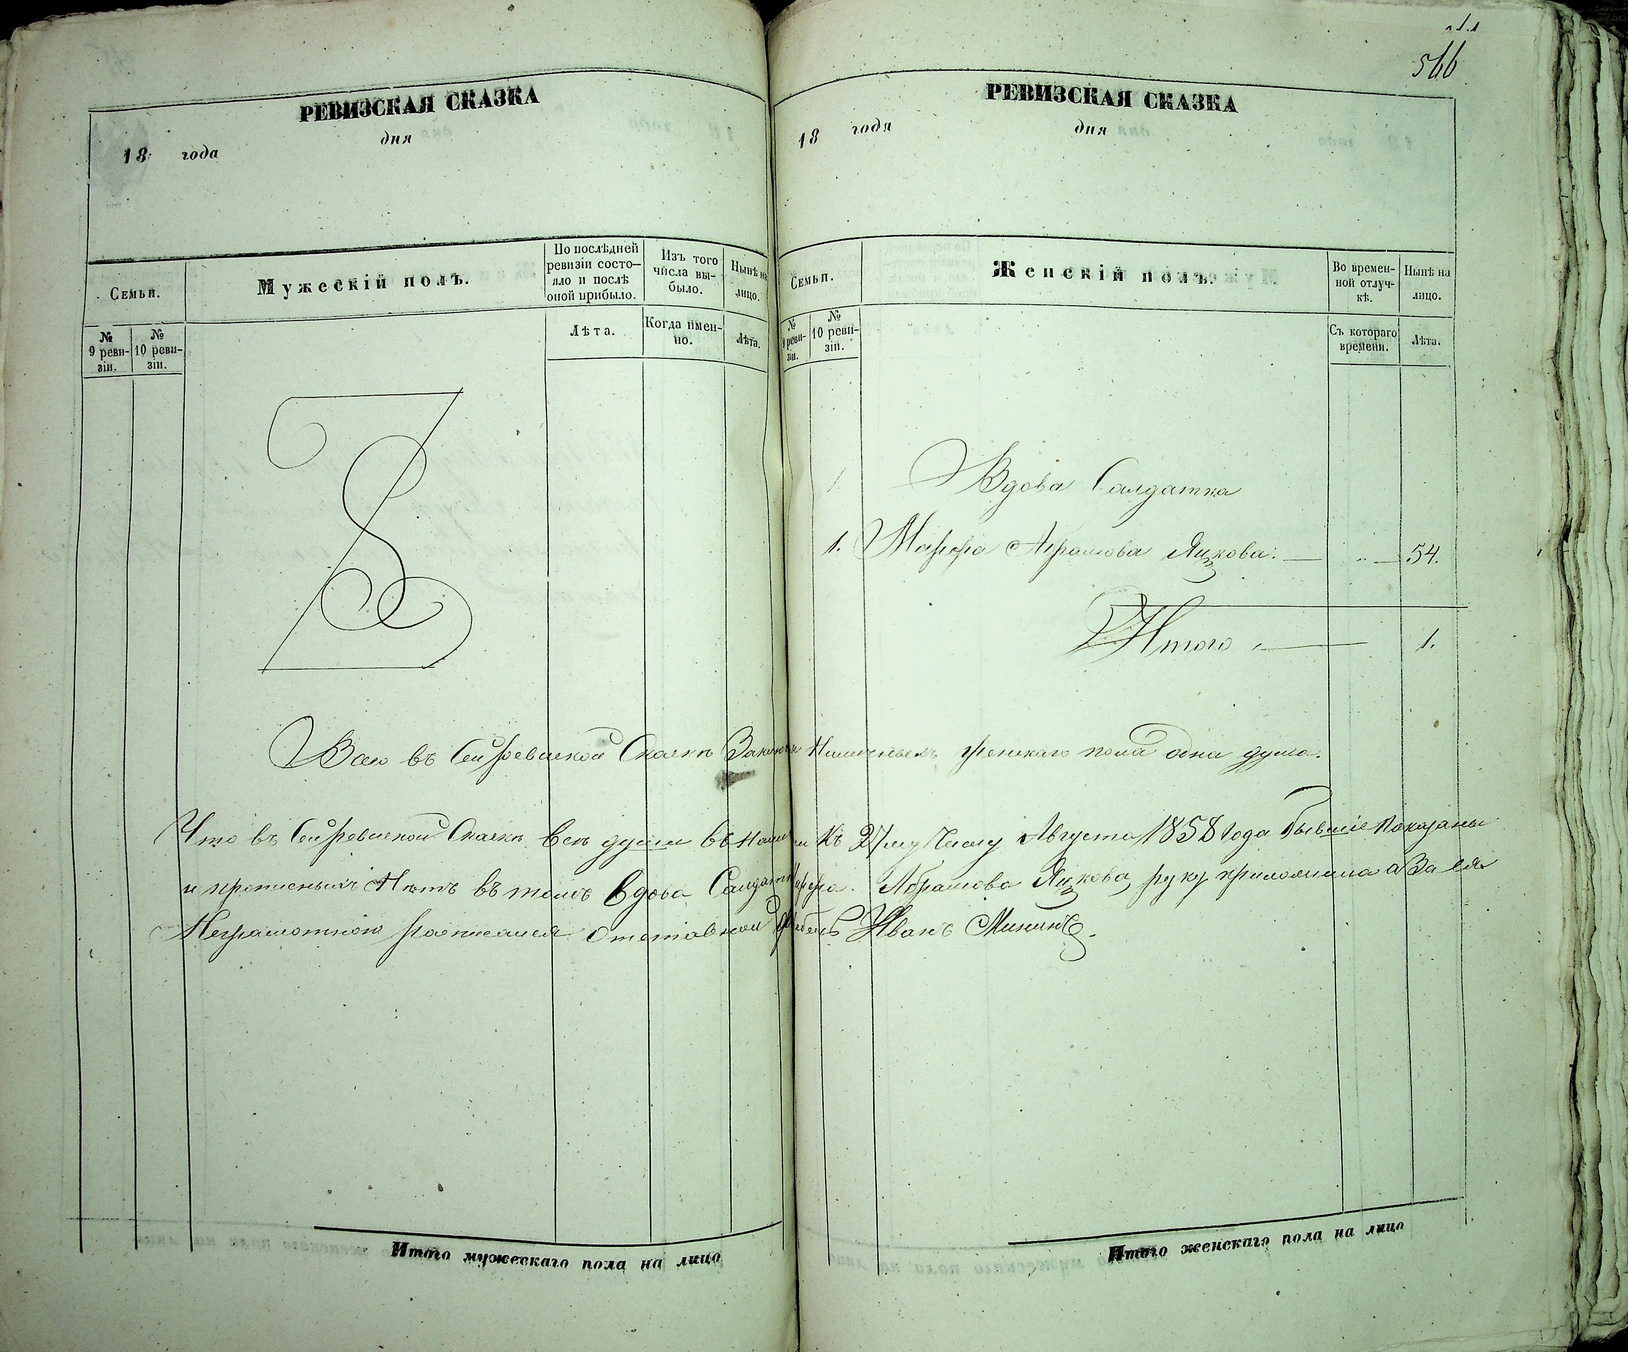 566
РЕВИЗСКАЯ СКАЗКА
18 года
дня
Семьи.
Мужескій полъ.
По послѣдней ревизіи состо- яло и послѣ оной прибыло.
Изъ того числа вы- было.
Нынѣ на лицо.
№ 9 реви- зіи.
№ 10 реви- зіи.
Лѣта.
Когда имен- но.
Лѣта.
РЕВИЗСКАЯ СКАЗКА
18 года
дня
Семьи.
Женскій полъ.
Во времен- ной отлуч- кѣ.
Нынѣ на лицо.
№ 9 реви- зіи.
№ 10 реви- зіи.
Съ котораго времени.
Лѣта.
Вдова Салдатка
1. Марфа Абрамова Яцкова: 54.
Итого 1.
Всего въ сей ревиской Сказкѣ женскаго пола одна душа.
Что въ сей ревиской Сказкѣ всѣ души въ къ 27му Числу Августа 1858 года бывшіе показаны
и прописныхъ Нѣтъ въ томъ вдова Салдатка Марфа Абрамова Яцкова руку приложила а За ея
Неграмотною росписался отставной Иванъ Мининъ.
Итого мужескаго пола на лицо
Итого женскаго пола на лицо